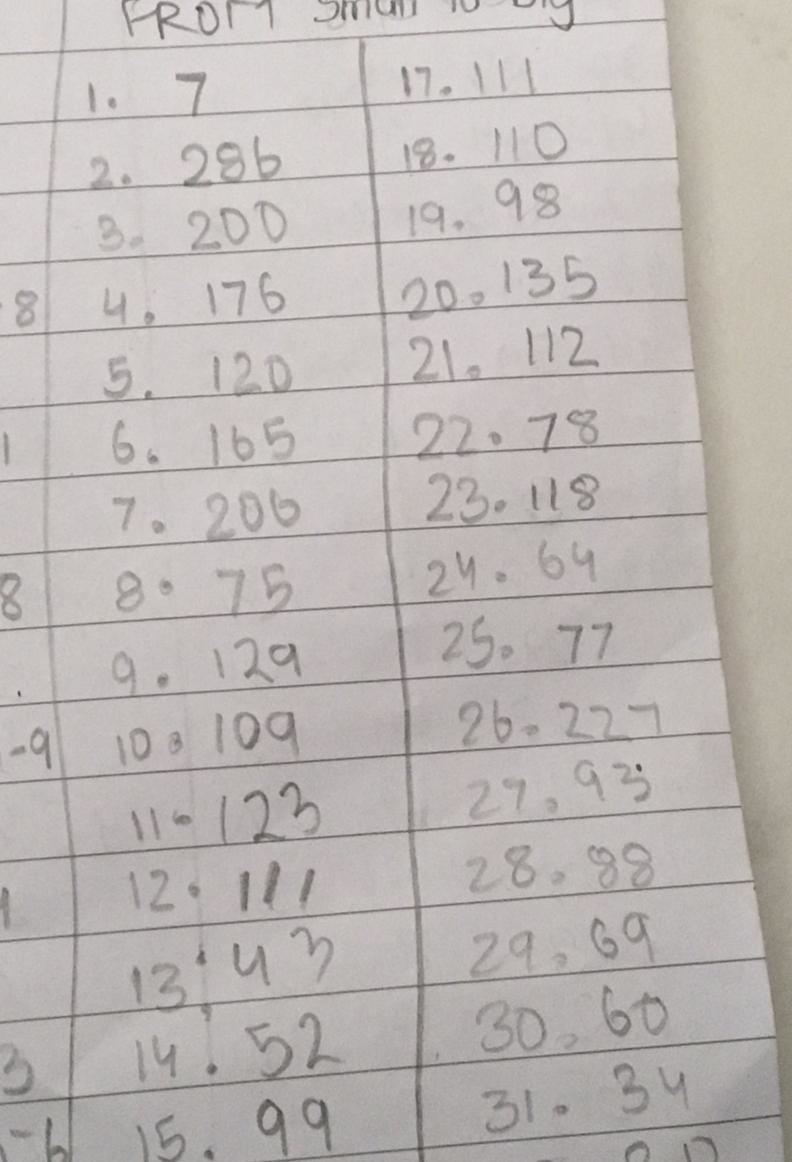 FROM Small to Big
8
1
8
.
-9
1
3
-6
1. 7
2. 286
3. 200
4. 176
5. 120
6. 165
7. 206
8. 75
9. 129
10. 109
11. 123
12. 111
13. 43
14. 52
15. 99
17. 111
18. 110
19. 98
20. 135
21. 112
22. 78
23. 118
24. 64
25. 77
26. 227
27. 93
28. 88
29. 69
30. 60
31. 34